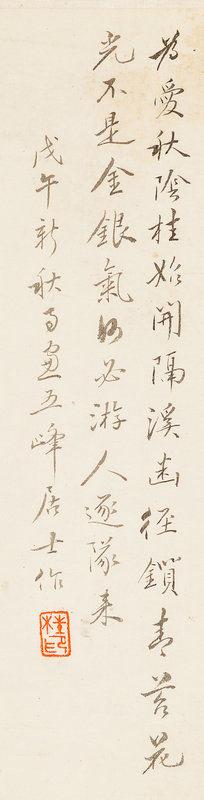 為愛秋陰桂始開隔溪幽徑鎖青苔花
光不是金銀氣何必游人逐隊來
戊午新秋寫畫五峰居士作